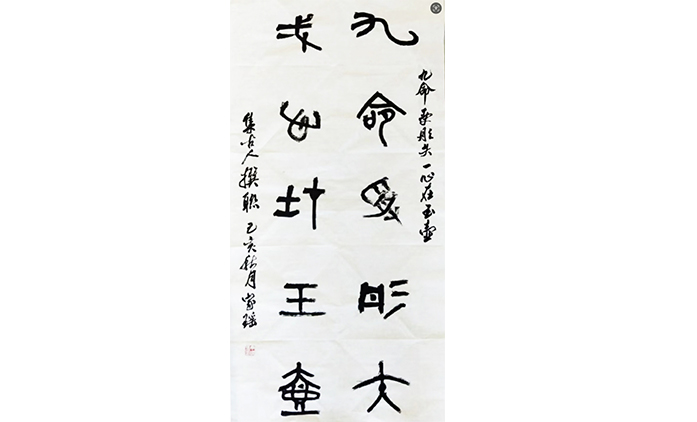 九命受彤矢一心在玉壺
九命受彤矢
弌心在玉壺
集古人撰联己亥秋月